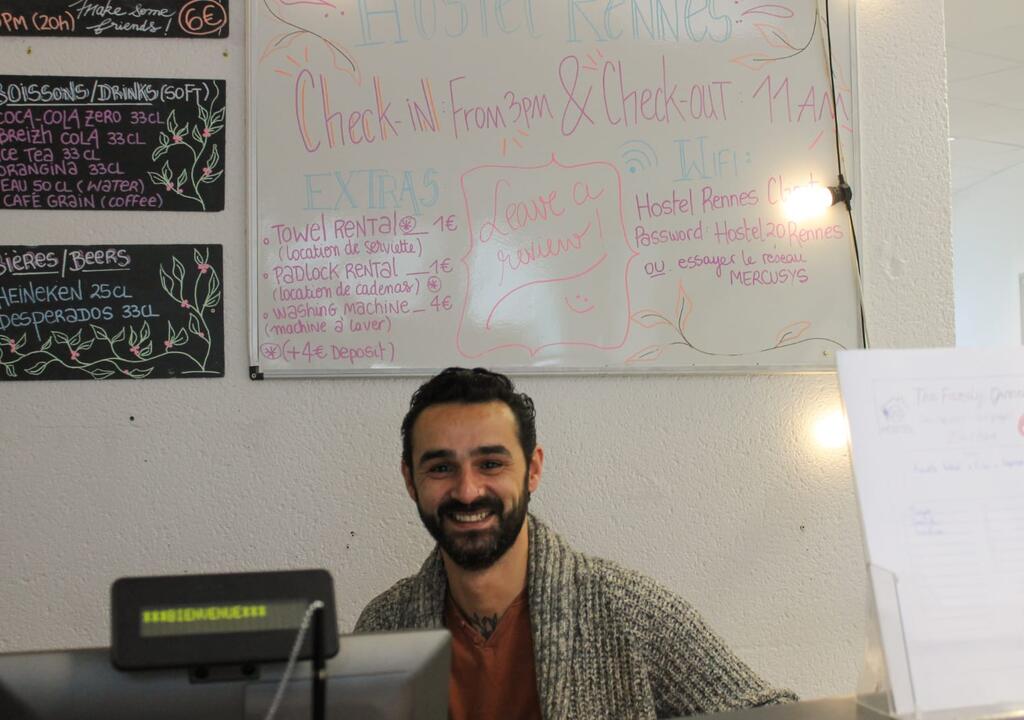 PM (20h) Make some friends! 6€
BOISSONS/DRINKS (SOFT)
COCA-COLA ZERO 33CL
BREIZH COLA 33CL
ICE TEA 33CL
ORANGINA 33CL
EAU 50CL (WATER)
CAFÉ GRAIN (coffee)
BIÈRES/BEERS
HEINEKEN 25CL
DESPERADOS 33CL
HOSTEL RENNES
Check-iN: From 3pm & Check-out: 11AM
EXTRAS
• TOWEL RENTAL ⊛ __ 1€
(location de serviette)
• PADLOCK RENTAL __ 1€
(location de cadenas) ⊛
• WASHING MACHINE _ 4€
(machine à laver)
⊛ (+4€ Deposit)
Leave a
review!
WiFi:
Hostel Rennes
Password: Hostel20Rennes
OU essayer le réseau
MERCUSYS
***BIENVENUE***
The Family